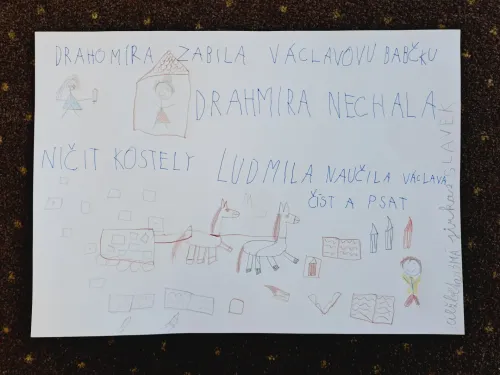 DRAHOMÍRA ZABILA VÁCLAVOVU BABČKU
DRAHMÍRA NECHALA
NIČIT KOSTELY
LUDMILA NAUČILA VÁCLAVA
ČÍST A PSAT
SLAVEK